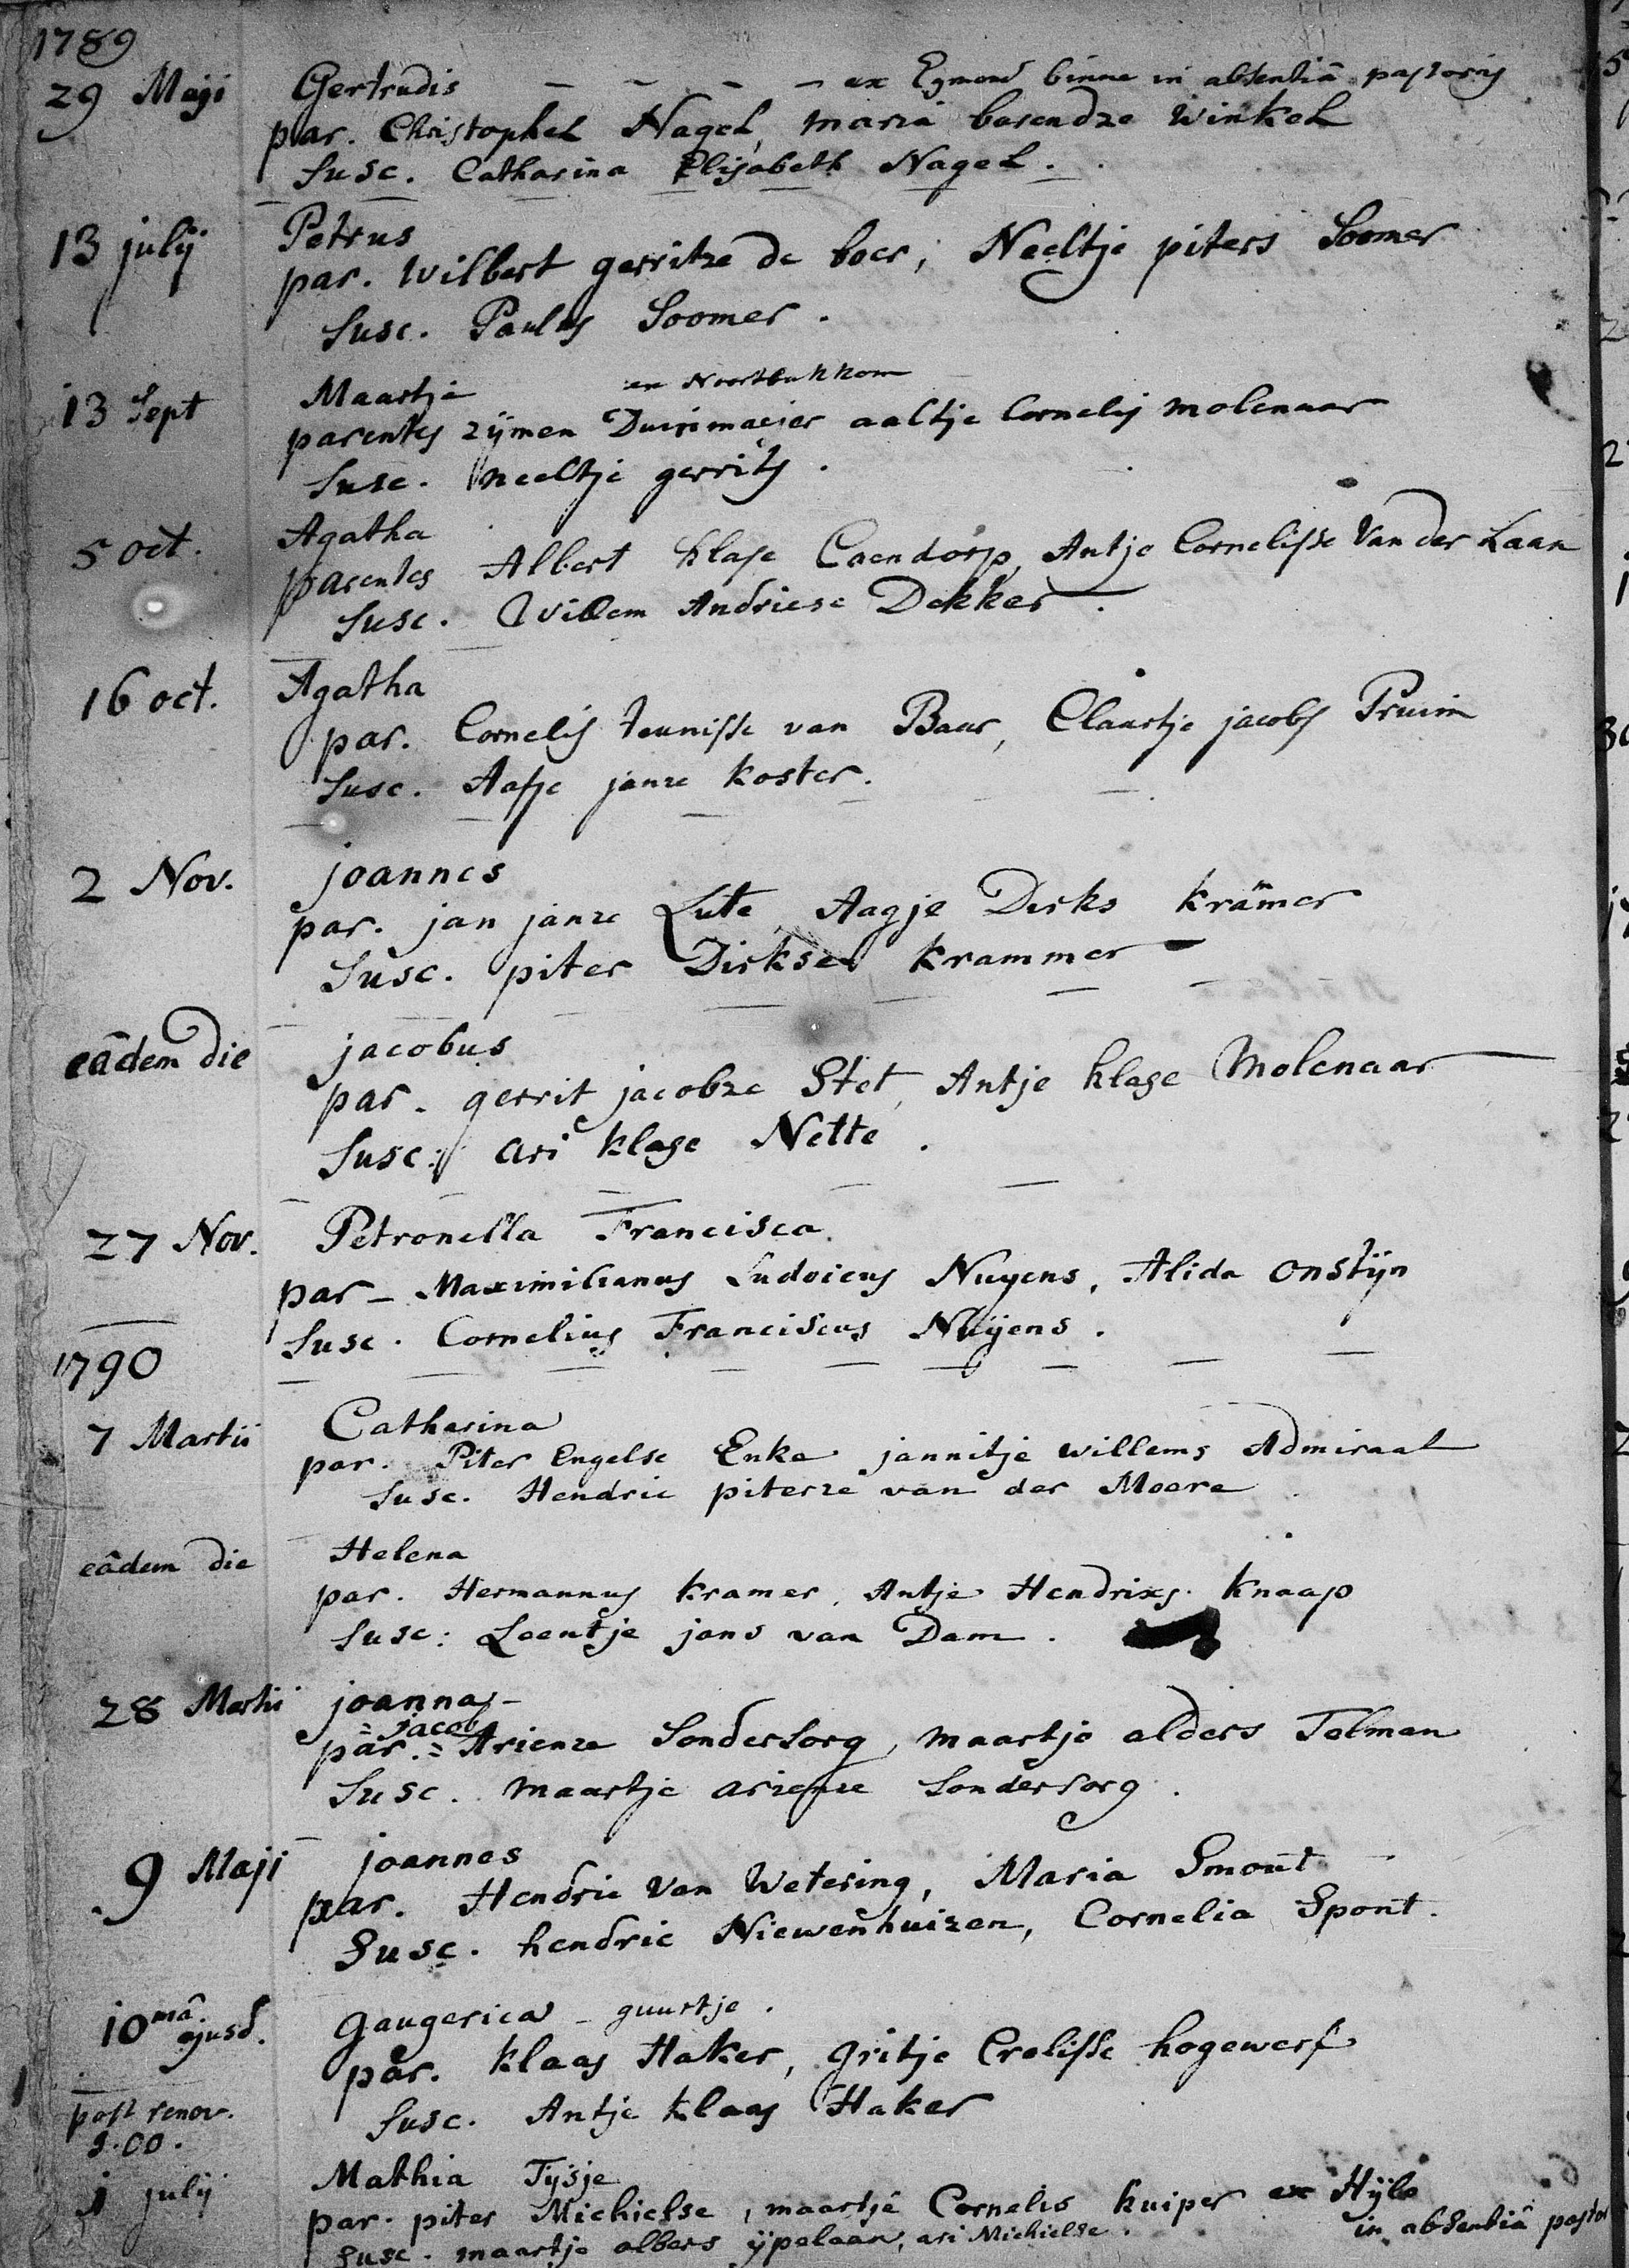 1789
29 Maji Gertrudis - - - - ex Egmond binne in absentiâ pastoris
par. Christophel Nagel, maria barendze Winkel
susc. Catharina Elisabeth Nagel.
13 julij Petrus
par. Wilbert gerritze de boer, Neeltje piters Soomer
susc. Paulus Soomer.
13 Sept Maartje
ex Noortbakkom
parentes zijmen Duinmaeier aaltje Cornelis molenaar
susc. neeltje gerrits.
5 oct. Agatha
parentes Albert klase Caendorp, Antje Cornelisse Van der Laan
susc. Willem Andriese Dekker.
16 oct. Agatha
par. Cornelis teunisse van Baar, Claartje jacobs Pruim
susc. Aafje janze koster.
2 Nov. joannes
par. jan janze Lute, Aagje Dirks kram̄er
Susc. piter Dirkse krammer
eâdem die jacobus
par. gerrit jacobze Stet, Antje klase Molenaar
susc: ari klase Nette.
27 Nov. Petronella Francisca.
par - Maximilianus Ludoicus Nuyens, Alida onstijn
susc. Cornelius Franciscus Nuijens.
1790
7 Martii Catharina
par. Piter Engelse Enke jannitje willems Admiraal
susc. Hendric piterze van der Moore
eâdem die Helena
par. Hermannus kramer, Antje Hendrixs knaap
susc: Leentje jans van Dam.
28 Martii joannas-
= jacob
par. = Arienze Sondersorg, maartje alders Tolman
Susc. maartje arienze Sondersorg.
9 Maji joannes
par. Hendric Van Wetering, Maria Smont
Susc. hendric Niewenhuizen, Cornelia Spont.
10mâ. ejusd. gaugerica - guurtje.
par. klaas Haker, gritje Crelisse hogewerf
susc. Antje klaas Haker
post renov.
S.OO.
1 julij Mathia Tijsje
par. piter Michielse, maartje Cornelis kuiper ex Hijlo
in absentiâ pastor
susc. maartje albers ijpelaan, ari Michielse.